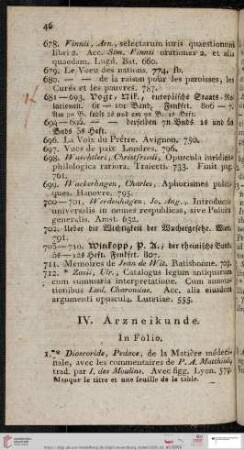 46
678. Vinnii, Arn., selectarum iuris quaestionum
libri 2. Acc. Sim. Vinnii orationes 2. et alia
quaedam. Lugd. Bat. 660.
679. Le Voeu des nations. 774. fb.
680. — — de la raison pour les paroisses, les
Curés et les pauvres. 787.
681—693. Vogt, Nik., europäische Staats-Re-
lationen. 6r 10r Band. Frnkfurt. 806
Bds 5s Heft.
696. La Voix du Prêtre. Avignon. 750.
697. Vues de paix Londres. 796.
698. Waechtleri, Christfriedi, Opuscula iuridico
philologica rariora. Traiecti. 733.
699. Wackerhagen, Charles, Aphorismes politi-
ques. Hanovre. 795.
700—701. Werdenhagen, Jo. Ang., Introductio
universalis in omnes respublicas, sive Politica
generalis. Amst. 632.
702. Ueber die Wichtigkeit der Wuchergesetze.
791.
705—710. Winkopp, P. A., der rheinische Bund.
Heft. Frnkfurt. 807.
711. Mémoires de Jean de Wit. Ratisbonne. 709.
712. * Zasii, Ulr., Catalogus legum antiquarum
cum summaria interpretatione. Cum annota-
tionibus Lud. Charondae. Acc. alia eiusdem
argumenti opuscula. Lutetiae. 555.
IV. Arzneikunde.
In Folio.
1.** Dioscoride, Pedace, de la Matière médeci-
nale, avec les commentaires de P. A. Matthiole,
trad. par J. des Moulins. Avec figg. Lyon. 579.
Manque le titre et une feuille de la table.